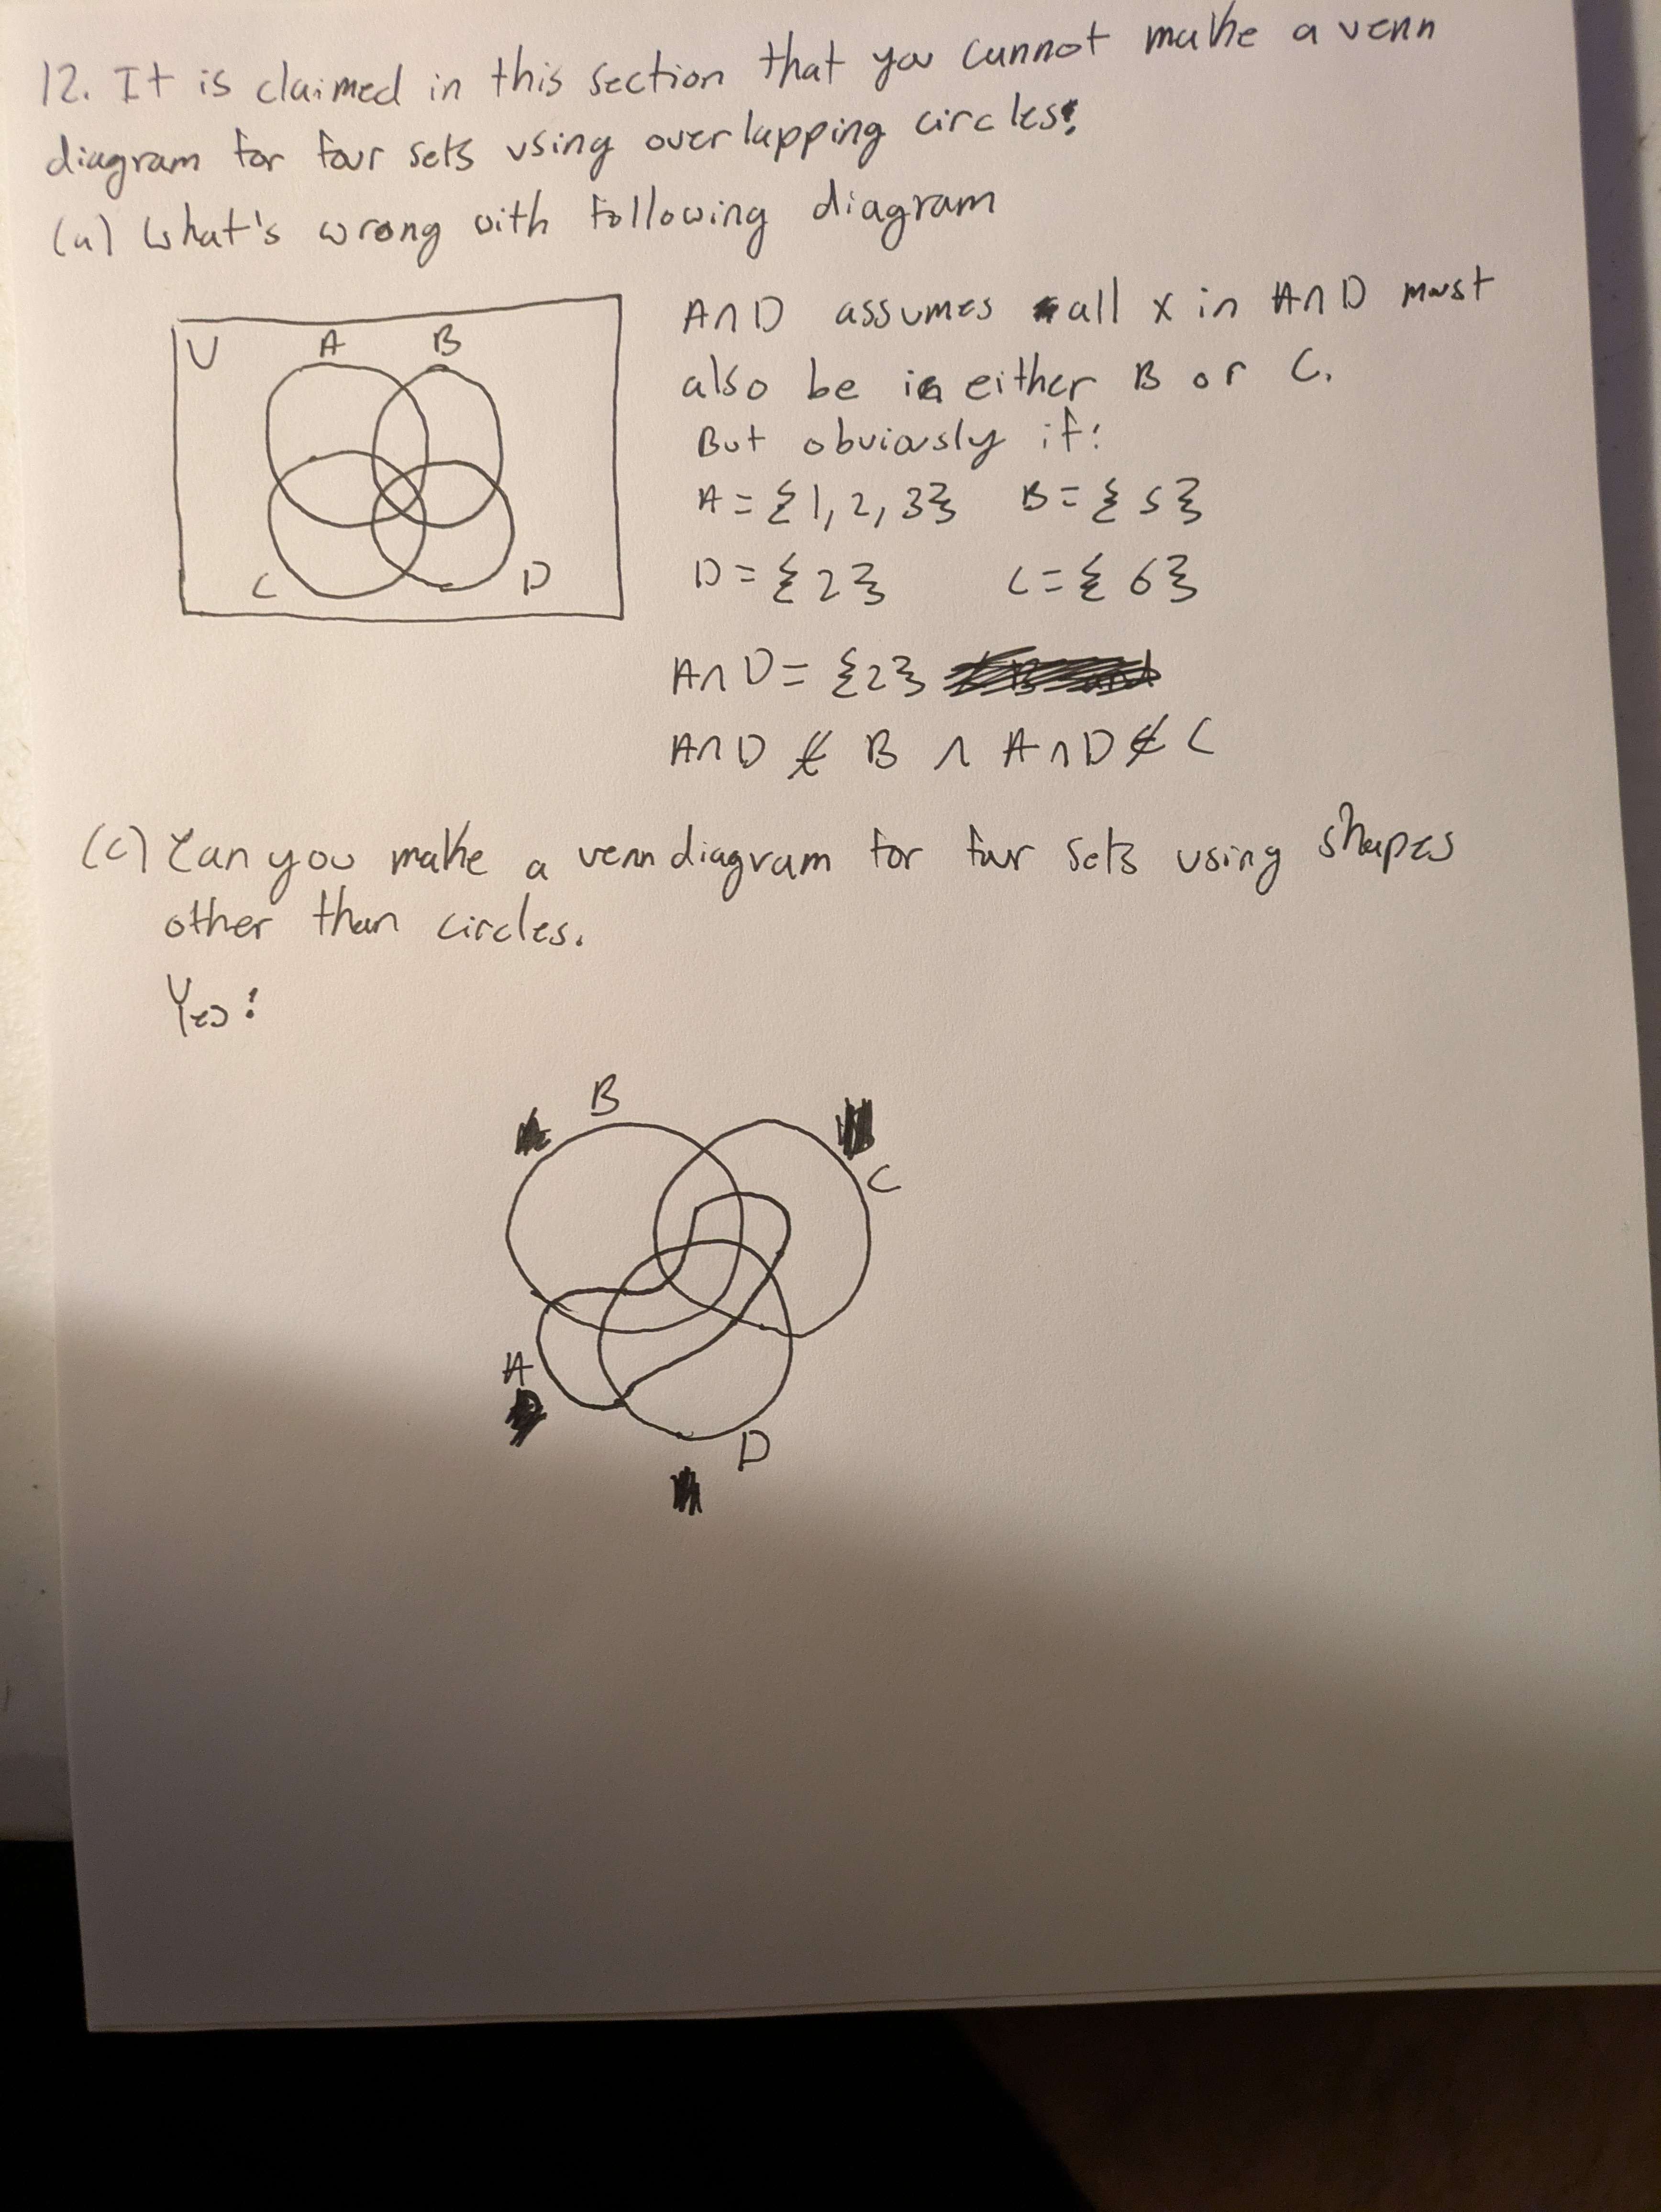 12. It is claimed in this section that you cannot make a venn
diagram for four sets using overlapping circles.
(a) What's wrong with following diagram
U A B
C D
A∩D assumes all x in A∩D must
also be in either B or C.
But obviously if:
A = {1, 2, 3} B = {5}
D = {2} C = {6}
A∩D = {2}
A∩D ⊄ B ∧ A∩D ⊄ C
(c) Can you make a venn diagram for four sets using shapes
other than circles.
Yes:
B
C
A
D